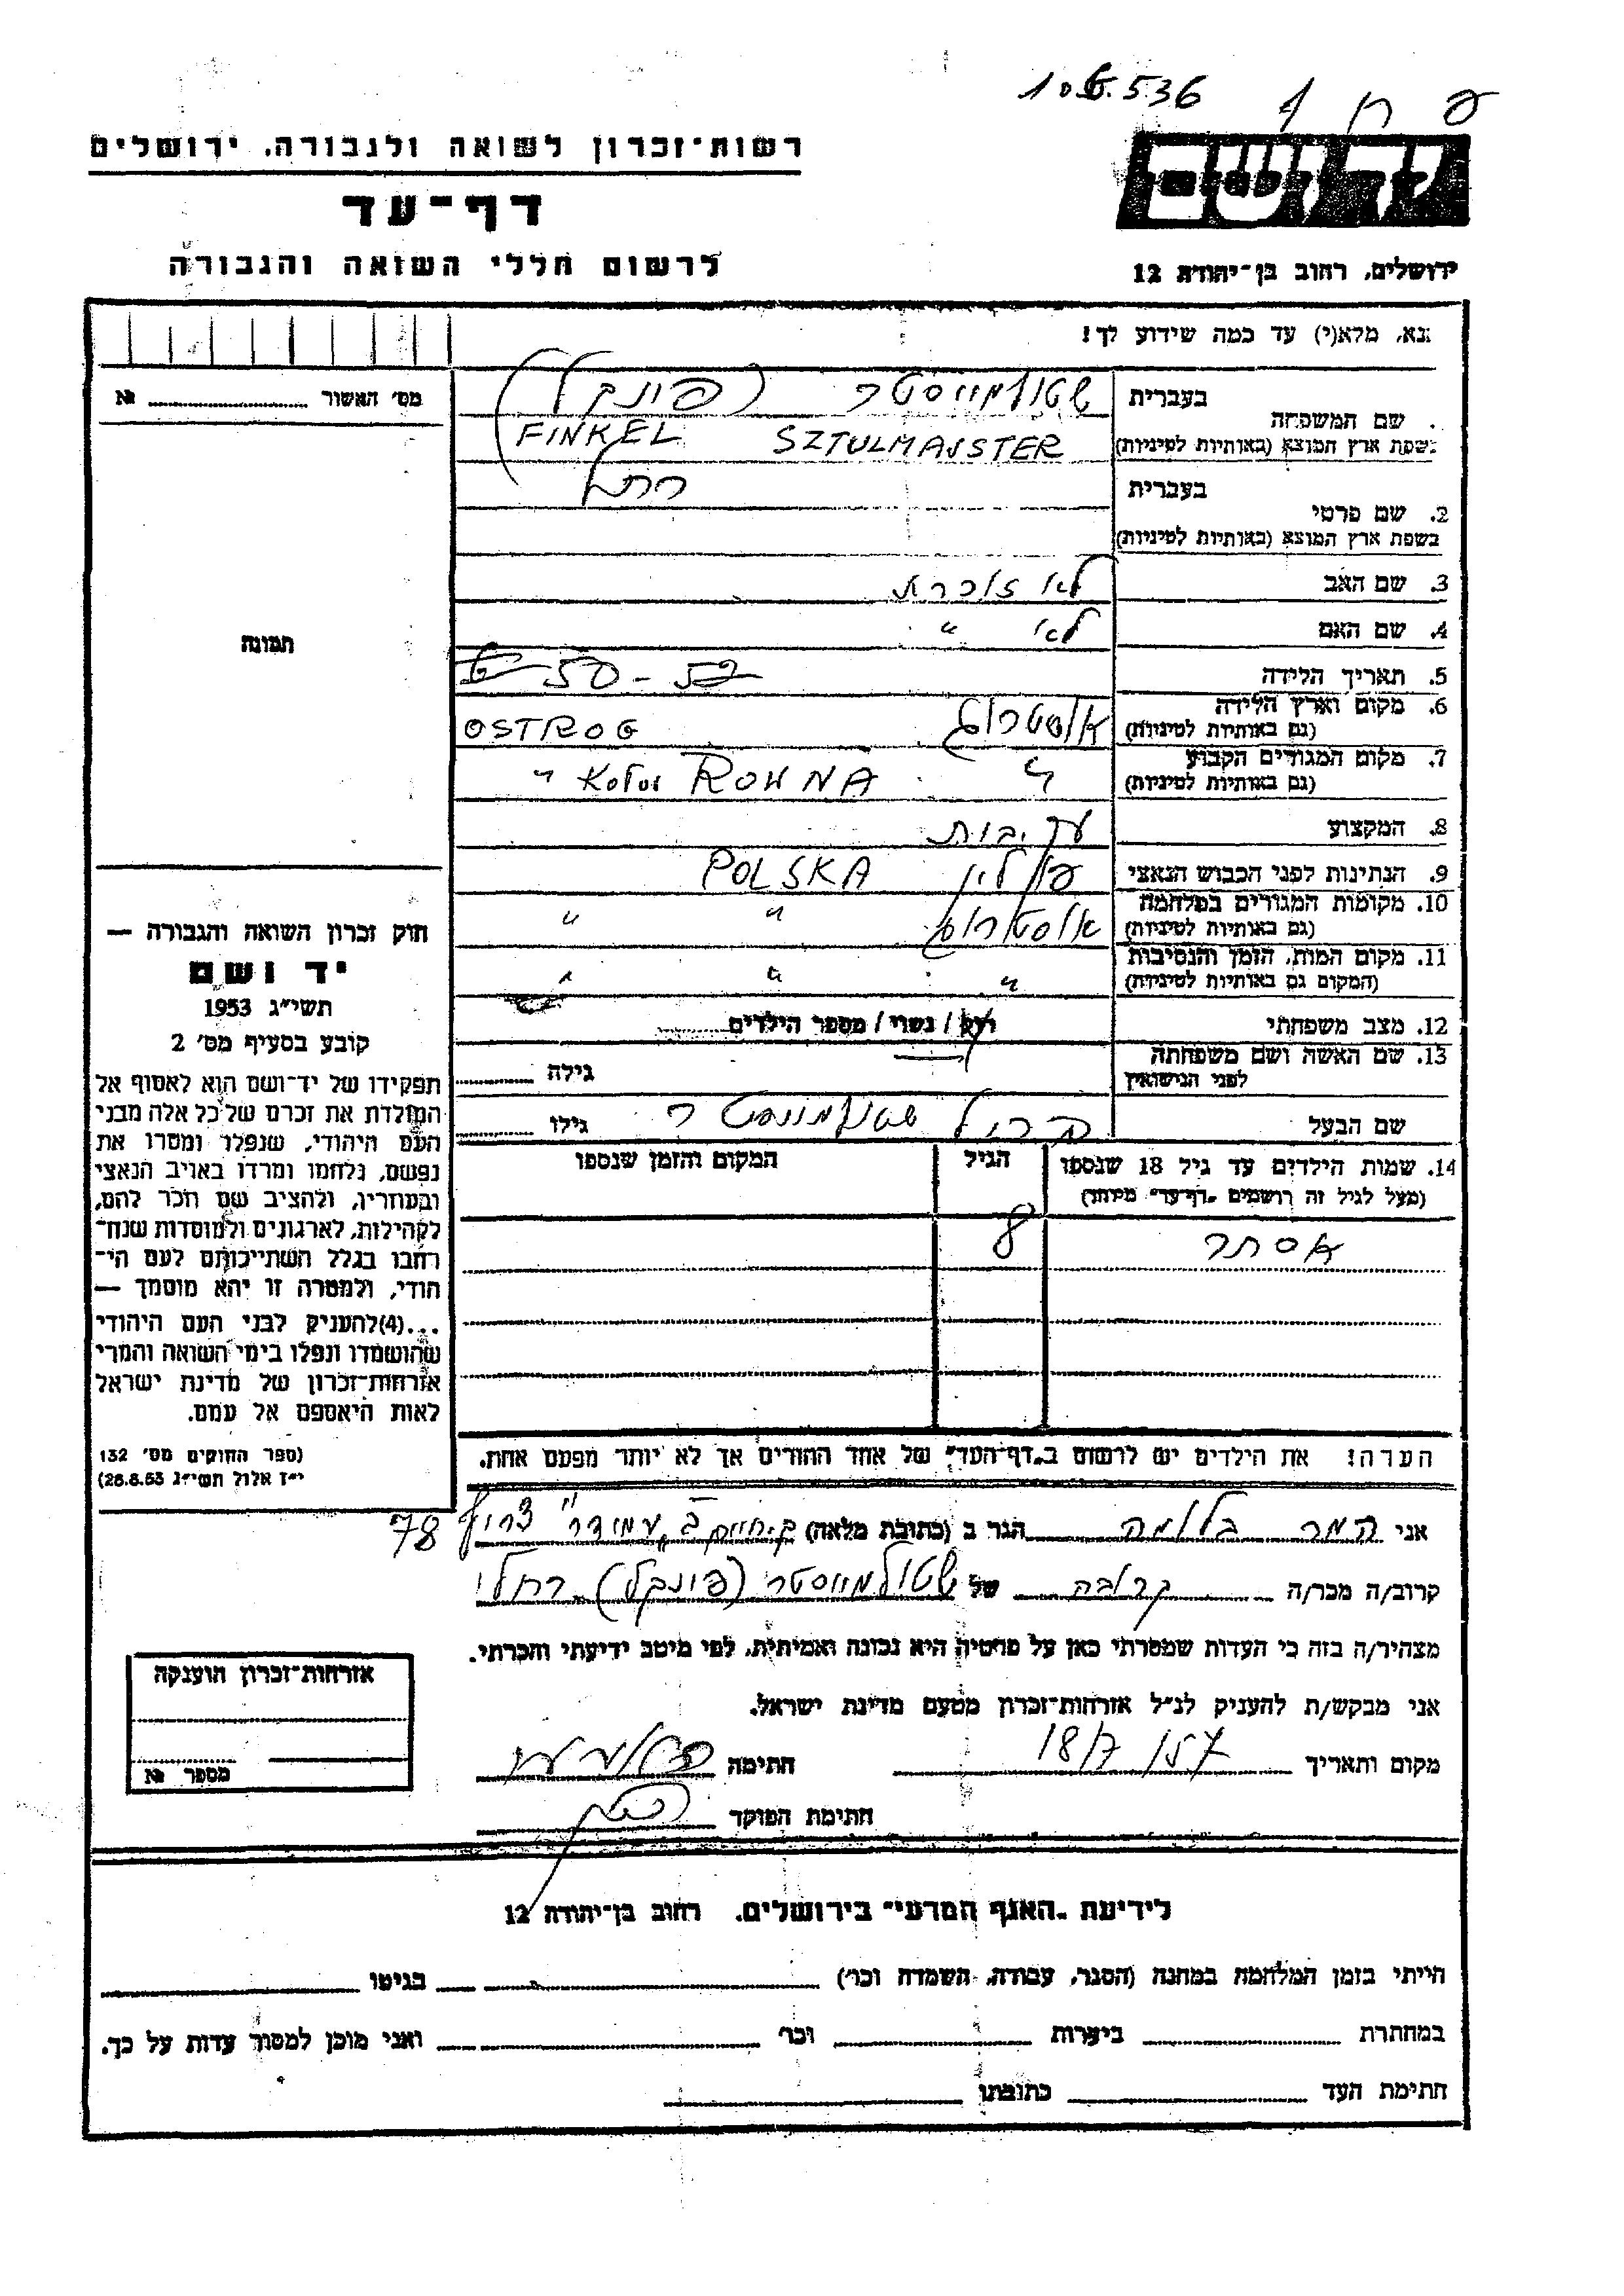 רשות־זכרון לשואה ולגבורה, ירושלים
דף־עד
לרשום חללי השואה והגבורה
יד ושם
ירושלים, רחוב בן־יהודה 12
נא, מלא(י) עד כמה שידוע לך!
מס׳ האשור № 
תמונה
חוק זכרון השואה והגבורה —
יד ושם
תשי״ג 1953
קובע בסעיף מס׳ 2
תפקידו של יד־ושם הוא לאסוף אל
המולדת את זכרם של כל אלה מבני
העם היהודי, שנפלו ומסרו את
נפשם, נלחמו ומרדו באויב הנאצי
ובעוזריו, ולהציב שם וזכר להם,
לקהילות, לארגונים ולמוסדות שנח־
רבו בגלל השתייכותם לעם הי־
הודי, ולמטרה זו יהא מוסמך —
...(4)להעניק לבני העם היהודי
שהושמדו ונפלו בימי השואה והמרי
אזרחות־זכרון של מדינת ישראל
לאות היאספם אל עמם.
(ספר החוקים מס׳ 132
י״ז אלול תשי״ג 28.8.53)
שם המשפחה בעברית שטולמייסטר (פינקל)
בשפת ארץ המוצא (באותיות לטיניות) SZTULMAJSTER FINKEL
2. שם פרטי בעברית רחל
בשפת ארץ המוצא (באותיות לטיניות)
3. שם האב לא זוכרת
4. שם האם לא "
5. תאריך הלידה 50 - 52
6. מקום וארץ הלידה (גם באותיות לטיניות) אוסטרוג OSTROG
7. מקום המגורים הקבוע (גם באותיות לטיניות) " ROWNA "
8. המקצוע עק.בית
9. הנתינות לפני הכבוש הנאצי פולין POLSKA
10. מקומות המגורים במלחמה (גם באותיות לטיניות) אוסטרוג " "
11. מקום המות, הזמן והנסיבות (המקום גם באותיות לטיניות) " " "
12. מצב משפחתי רוק / נשוי / מספר הילדים
13. שם האשה ושם משפחתה לפני הנישואין גילה
שם הבעל שטולמייסטר גילו
14. שמות הילדים עד גיל 18 שנספו הגיל המקום והזמן שנספו
(מעל לגיל זה רושמים „דף־עד״ מיוחד)
אסתר 8
הערה: את הילדים יש לרשום ב„דף־העד״ של אחד ההורים אך לא יותר מפעם אחת.
אני בלומה הגר ב (כתובת מלאה) ק.חיים ב 78
קרוב/ה מכר/ה קרובה של שטולמייסטר (פינקל) רחל
מצהיר/ה בזה כי העדות שמסרתי כאן על פרטיה היא נכונה ואמיתית, לפי מיטב ידיעתי והכרתי.
אני מבקש/ת להעניק לנ״ל אזרחות־זכרון מטעם מדינת ישראל.
מקום ותאריך 18/7/57 חתימה
חתימת הפוקד
אזרחות־זכרון הוענקה
מספר №
לידיעת „האגף המדעי״ בירושלים, רחוב בן־יהודה 12
הייתי בזמן המלחמה במחנה (הסגר, עבודה, השמדה וכו׳) בגיטו
במחתרת ביערות וכו׳ ואני מוכן למסור עדות על כך.
חתימת העד כתובתו